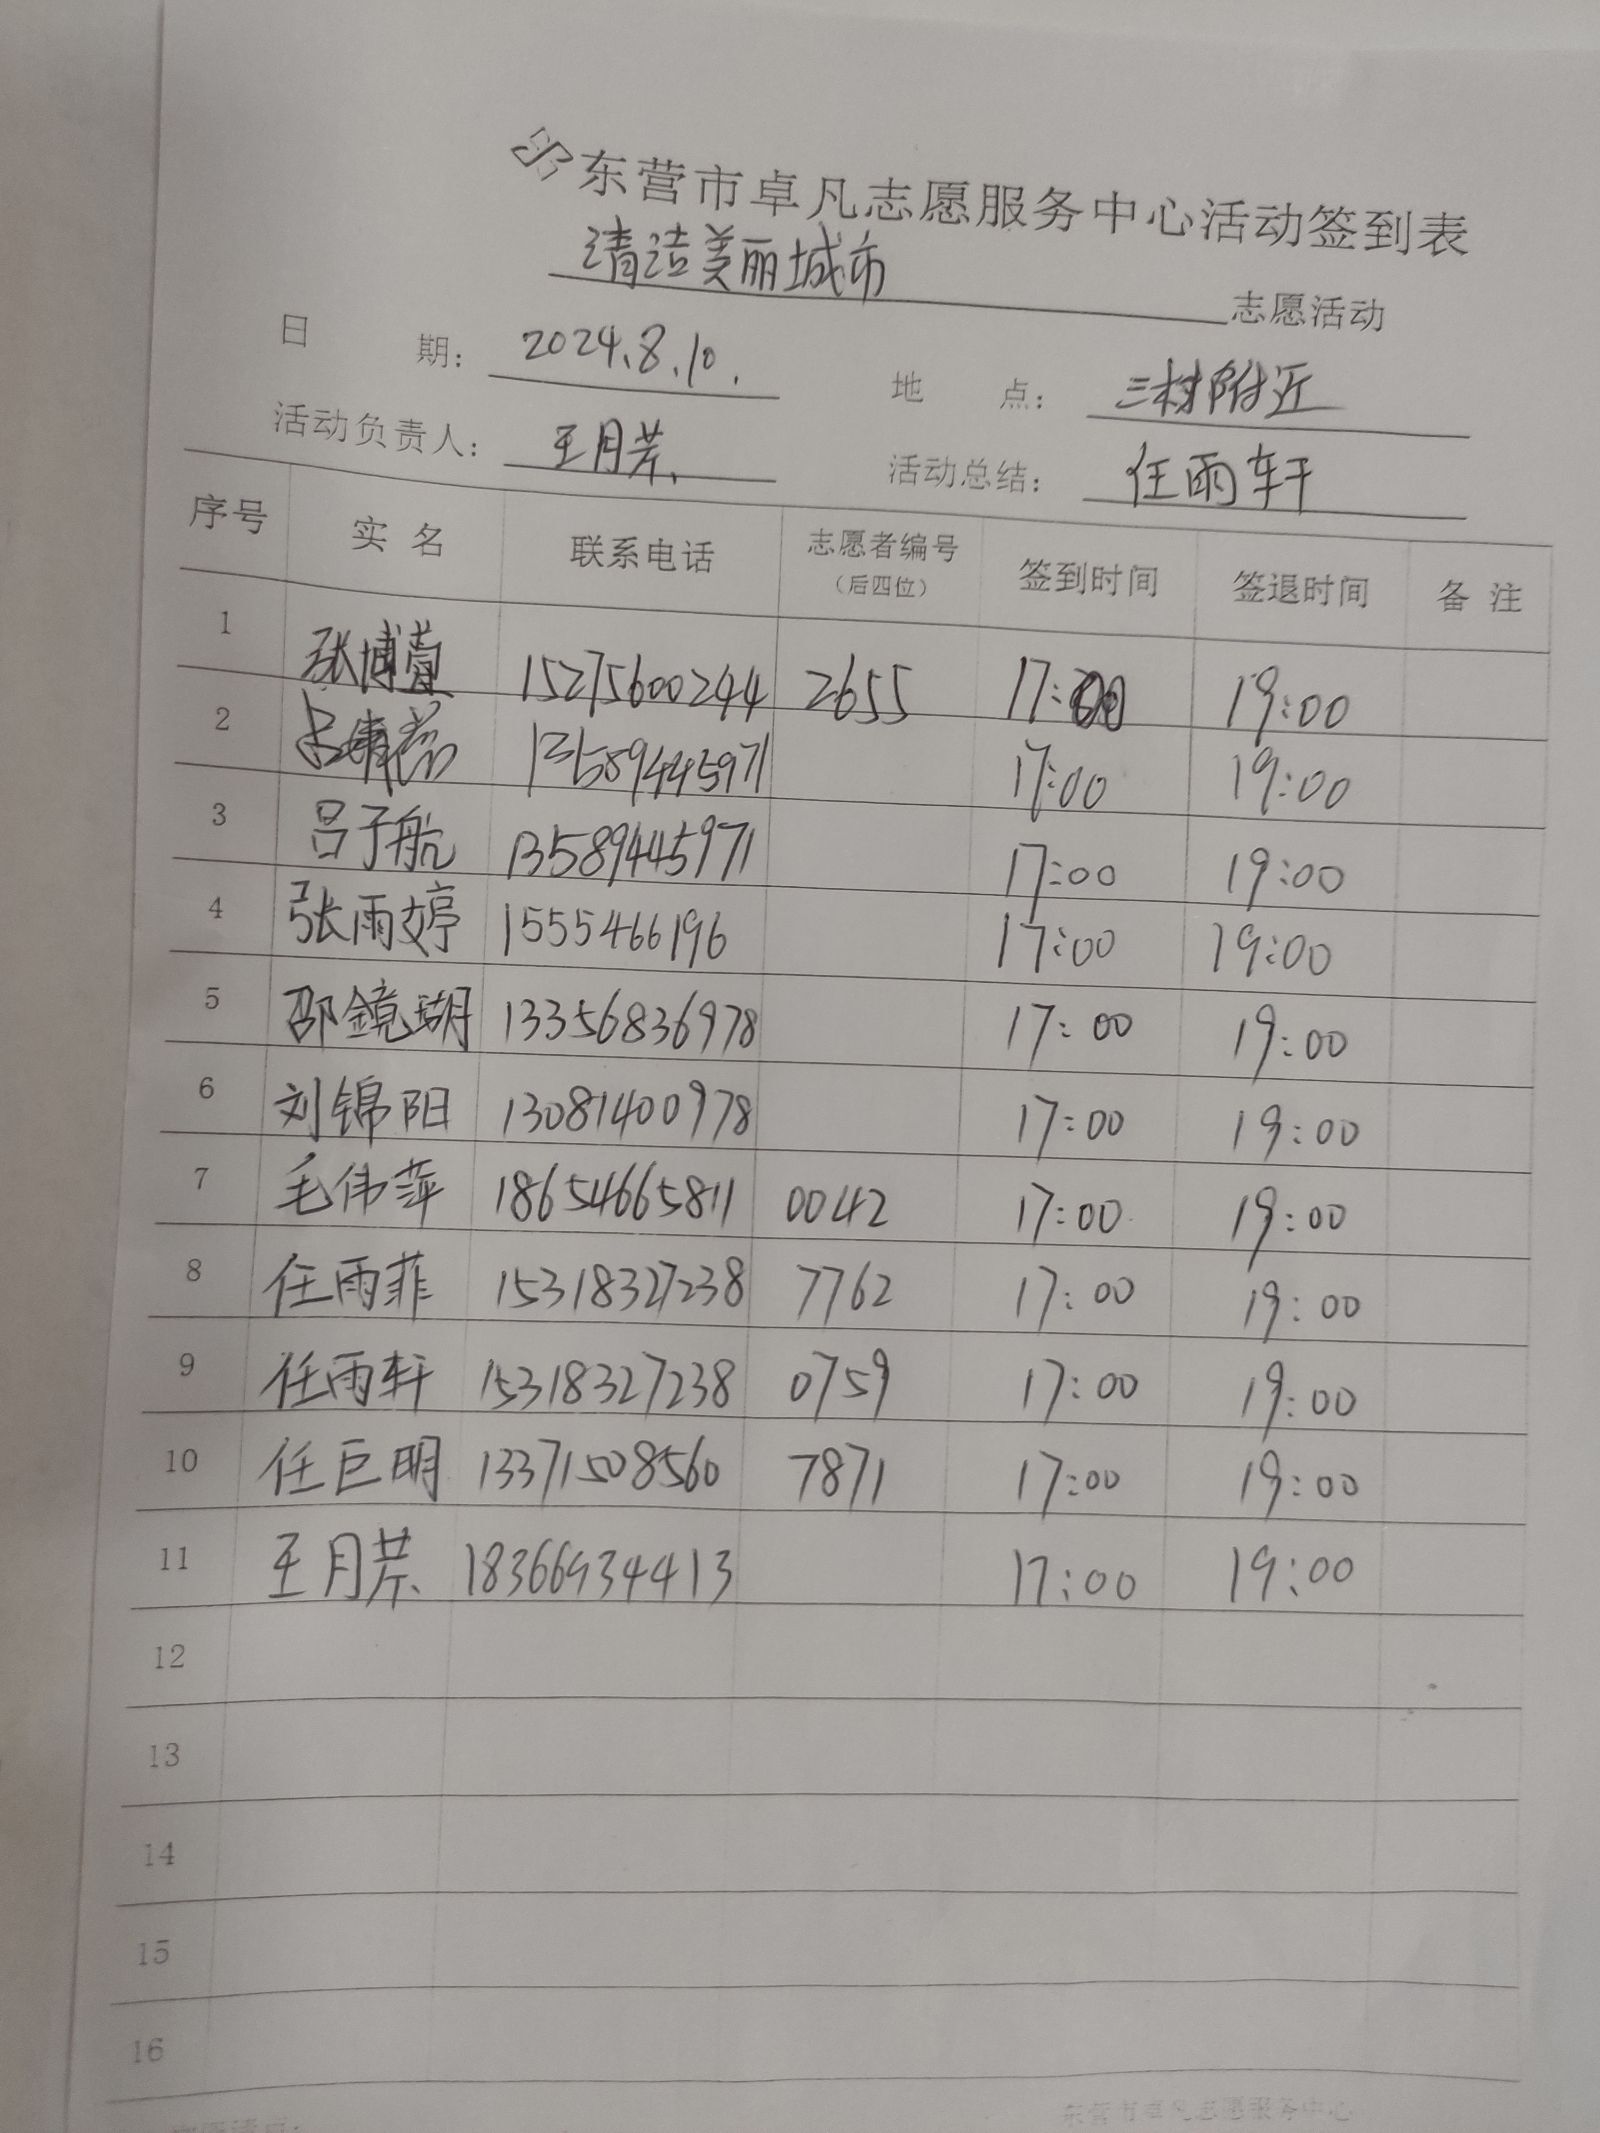 东营市卓凡志愿服务中心活动签到表
清洁美丽城市 志愿活动
日 期: 2024.8.10. 地 点: 三村附近
活动负责人: 王月芹. 活动总结: 任雨轩
序号 实名 联系电话 志愿者编号(后四位) 签到时间 签退时间 备注
1 张博萱 15275600244 2655 17:00 19:00
2 13589445971 17:00 19:00
3 吕子航 13589445971 17:00 19:00
4 张雨婷 1555466196 17:00 19:00
5 邵鏡瑚 13356836978 17:00 19:00
6 刘锦阳 13081400978 17:00 19:00
7 毛伟萍 18654665811 0042 17:00 19:00
8 任雨菲 15318327238 7762 17:00 19:00
9 任雨轩 15318327238 0759 17:00 19:00
10 任巨明 13371508560 7871 17:00 19:00
11 王月芹 18366934413 17:00 19:00
12
13
14
15
16
东营市卓凡志愿服务中心